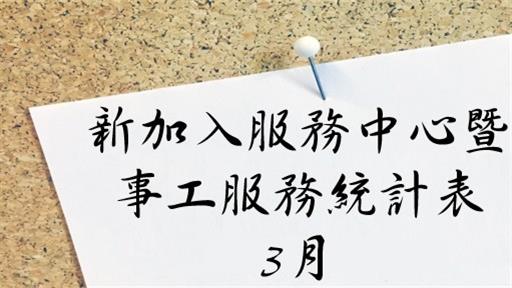 新加入服務中心暨
事工服務統計表
3月